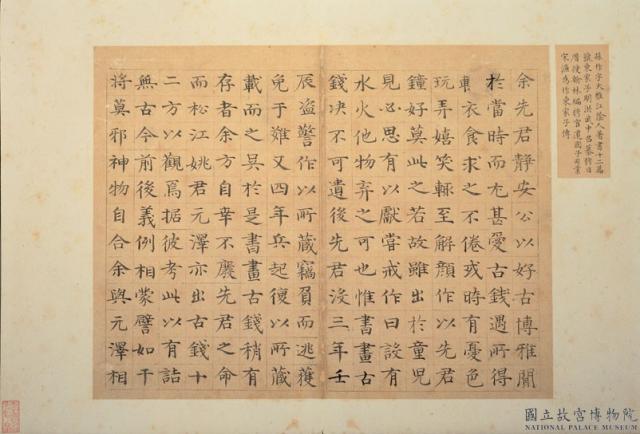 孫作字大雅江陰人著書十二篇
號東家子明洪武中召纂修日
曆授翰林編修官遷國子司業
宋濂為作東家子傳
余先君靜安公以好古博雅聞
於當時而尤甚愛古錢遇所得
衣食求之不倦或時有憂色
玩弄嬉笑輒至解顏作以先君
鐘好莫此之若故雖出於童兒
見必思有以獻嘗戒作曰設有
水火他物棄之可也惟書畫古
錢决不可遺後先君沒三年壬
辰盜警作以所藏竊負而逃獲
免于難又四年兵起復以所藏
載而之吳於是書畫古錢稍有
存者余方自幸不廢先君之命
而松江姚君元澤亦出古錢十
二方以觀焉据彼考此以有詰
無古今前後義例相蒙譬如干
將莫邪神物自合余與元澤相
國立故宮博物院
NATIONAL PALACE MUSEUM